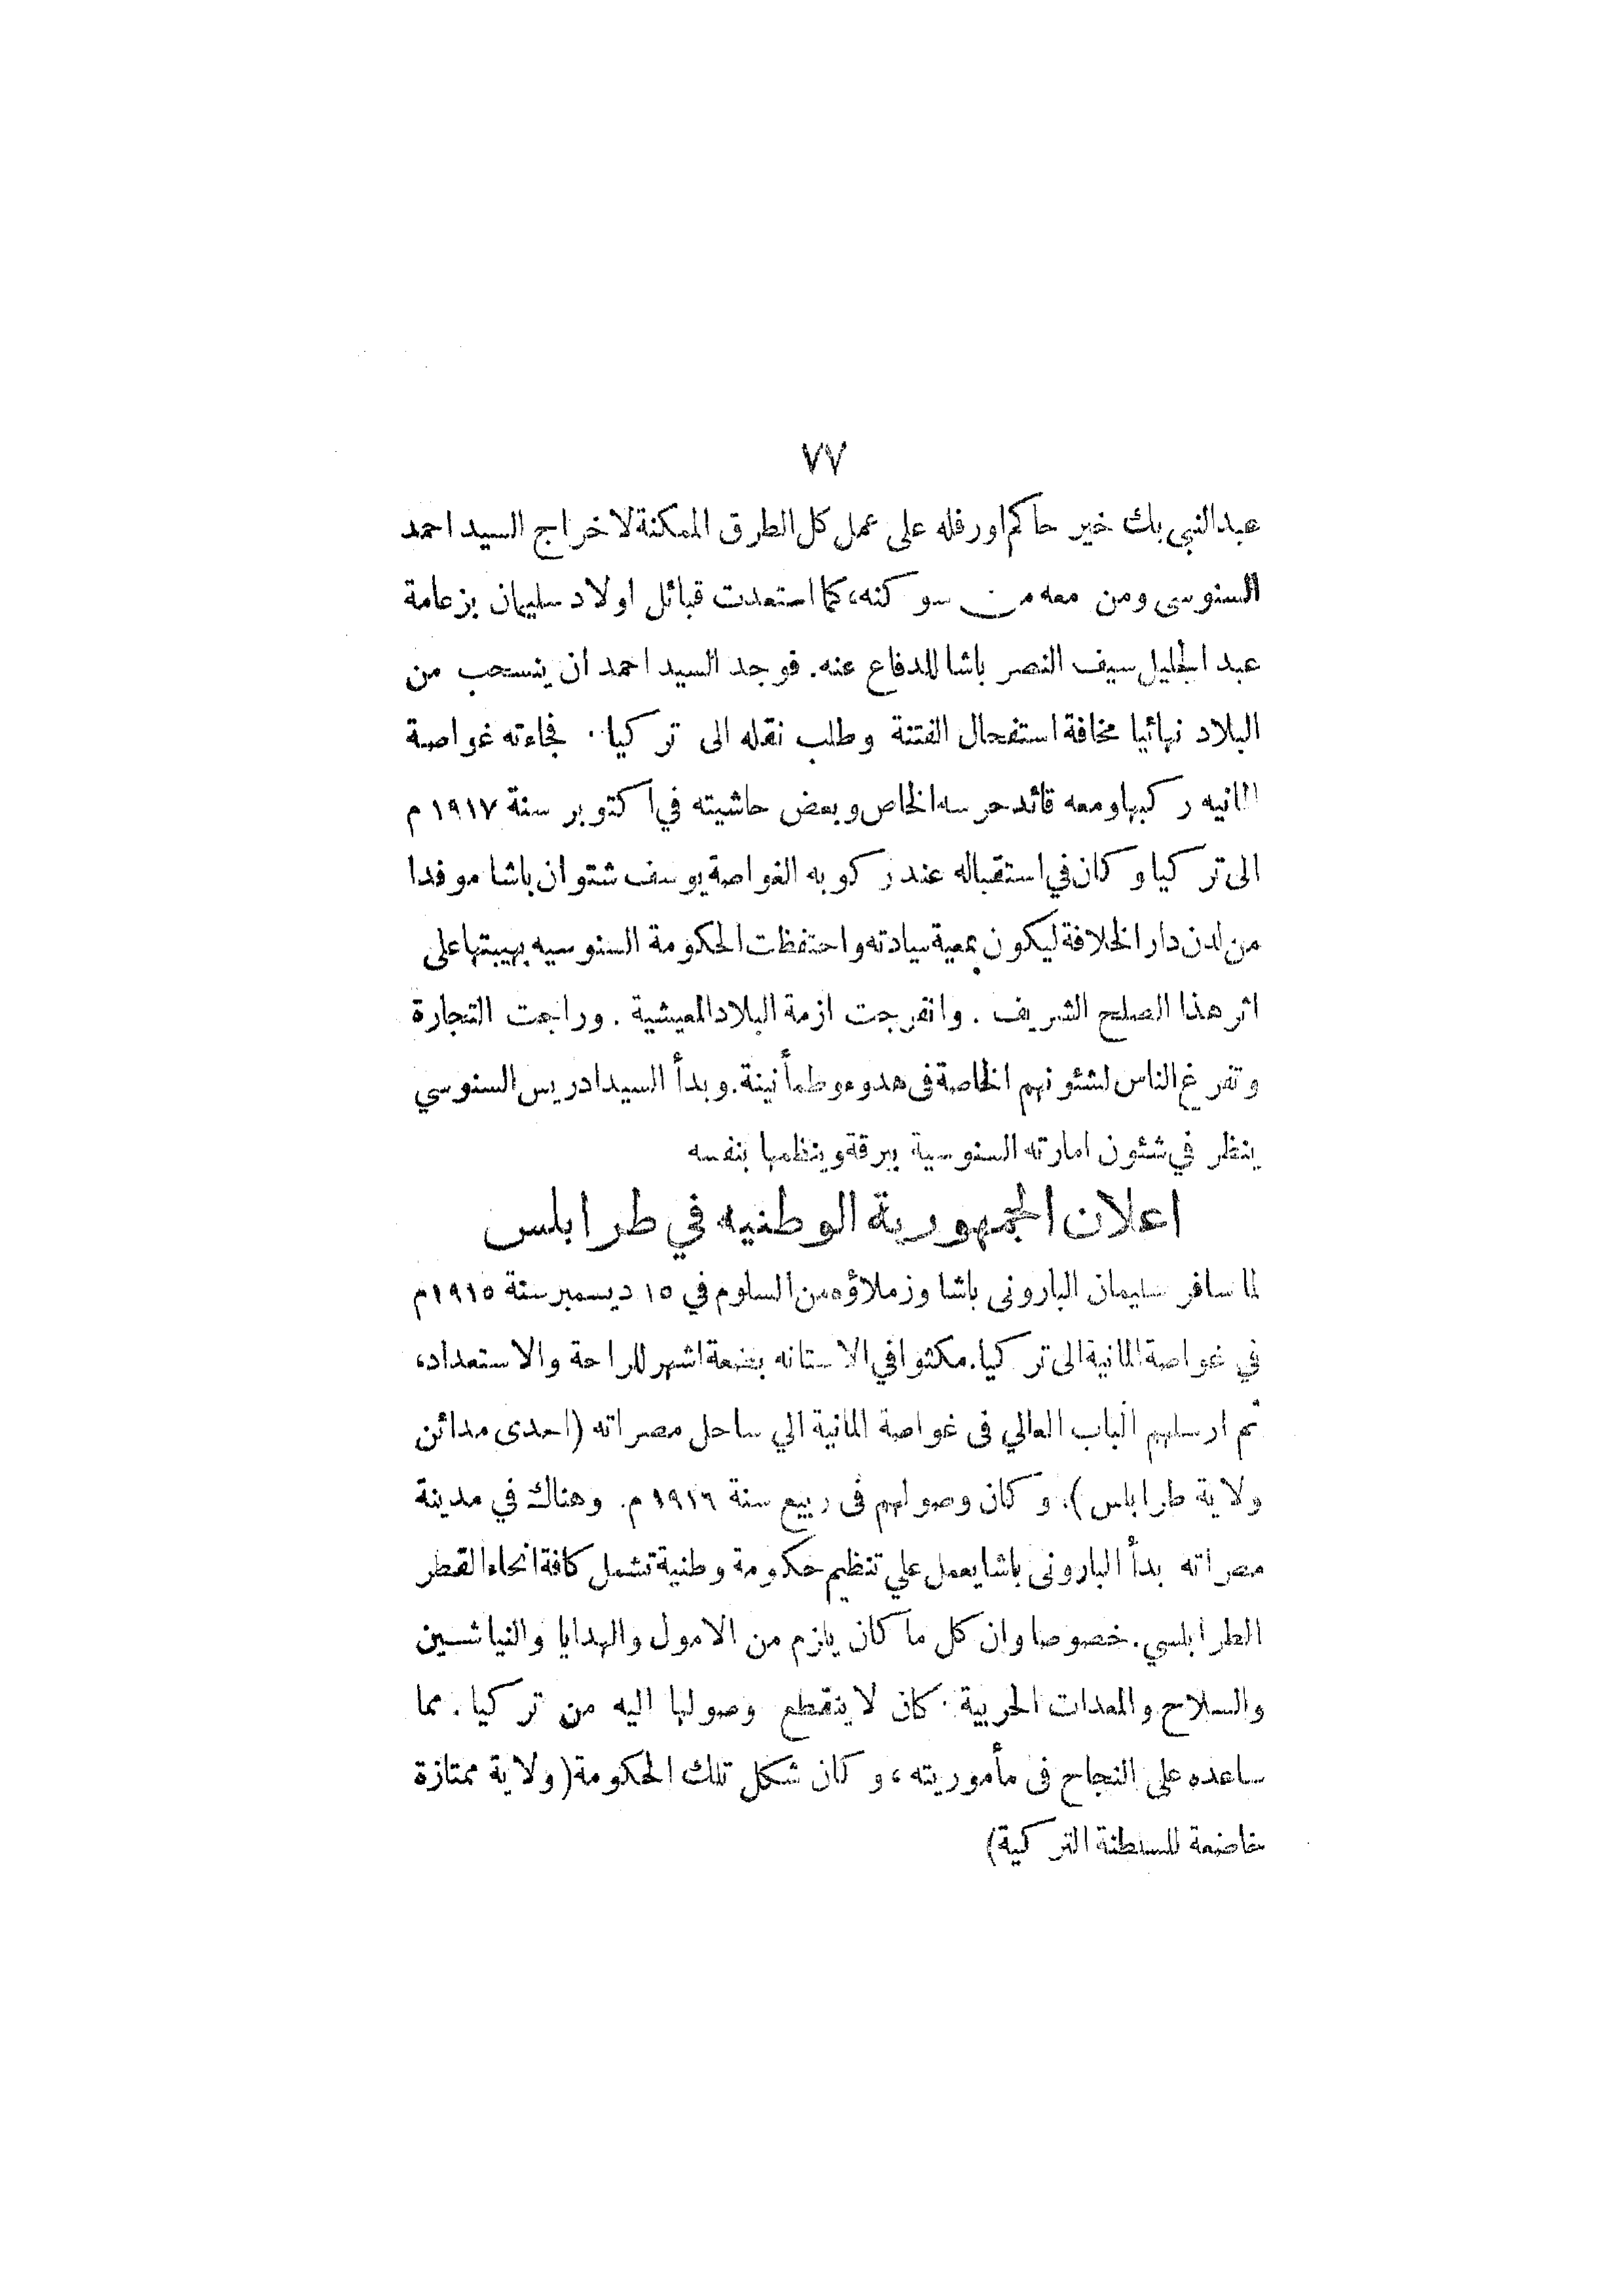 ٧٧
عبدالنبى بك خير حاكم اورفله على عمل كل الطرق الممكنة لاخراج السيد احمد
السنوسى ومن معه من سوكنه، كما استعدت قبائل اولاد سليمان بزعامة
عبد الجليل سيف النصر باشا للدفاع عنه. فوجد السيد احمد ان ينسحب من
البلاد نهائيا مخافة استفحال الفتنة وطلب نقله الى تركيا. فجاءته غواصة
المانيه ركبها ومعه قائد حرسه الخاص وبعض حاشيته في اكتوبر سنة ١٩١٧ م
الى تركيا وكان في استقباله عند ركوبه الغواصة يوسف شتوان باشا موفدا
من لدن دار الخلافة ليكون بمعية سيادته واحتفظت الحكومة السنوسيه بهيبتها على
اثر هذا الصلح الشريف . وانفرجت ازمة البلاد المعيشية . وراجت التجارة
وتفرغ الناس لشئونهم الخاصة فى هدوء وطمأنينة. وبدأ السيد ادريس السنوسي
ينظر في شئون امارته السنوسية ببرقة وينظمها بنفسه
اعلان الجمهورية الوطنيه في طرابلس
لما سافر سليمان البارونى باشا وزملاؤه من السلوم في ١٥ ديسمبر سنة ١٩١٥م
في غواصة المانية الى تركيا. مكثوا في الاستانه بضعة اشهر للراحة والاستعداد،
ثم ارسلهم الباب العالي فى غواصة المانية الي ساحل مصراته (احدى مدائن
ولاية طرابلس). وكان وصولهم فى ربيع سنة ١٩١٦ م. وهناك في مدينة
مصراته بدأ البارونى باشا يعمل علي تنظيم حكومة وطنية تشمل كافة انحاء القطر
الطرابلسي. خصوصا وان كل ما كان يلزم من الامول والهدايا والنياشين
والسلاح والمعدات الحربية. كان لا ينقطع وصولها اليه من تركيا. مما
ساعده على النجاح فى مأموريته، وكان شكل تلك الحكومة (ولاية ممتازة
خاضعة للسلطنة التركية)